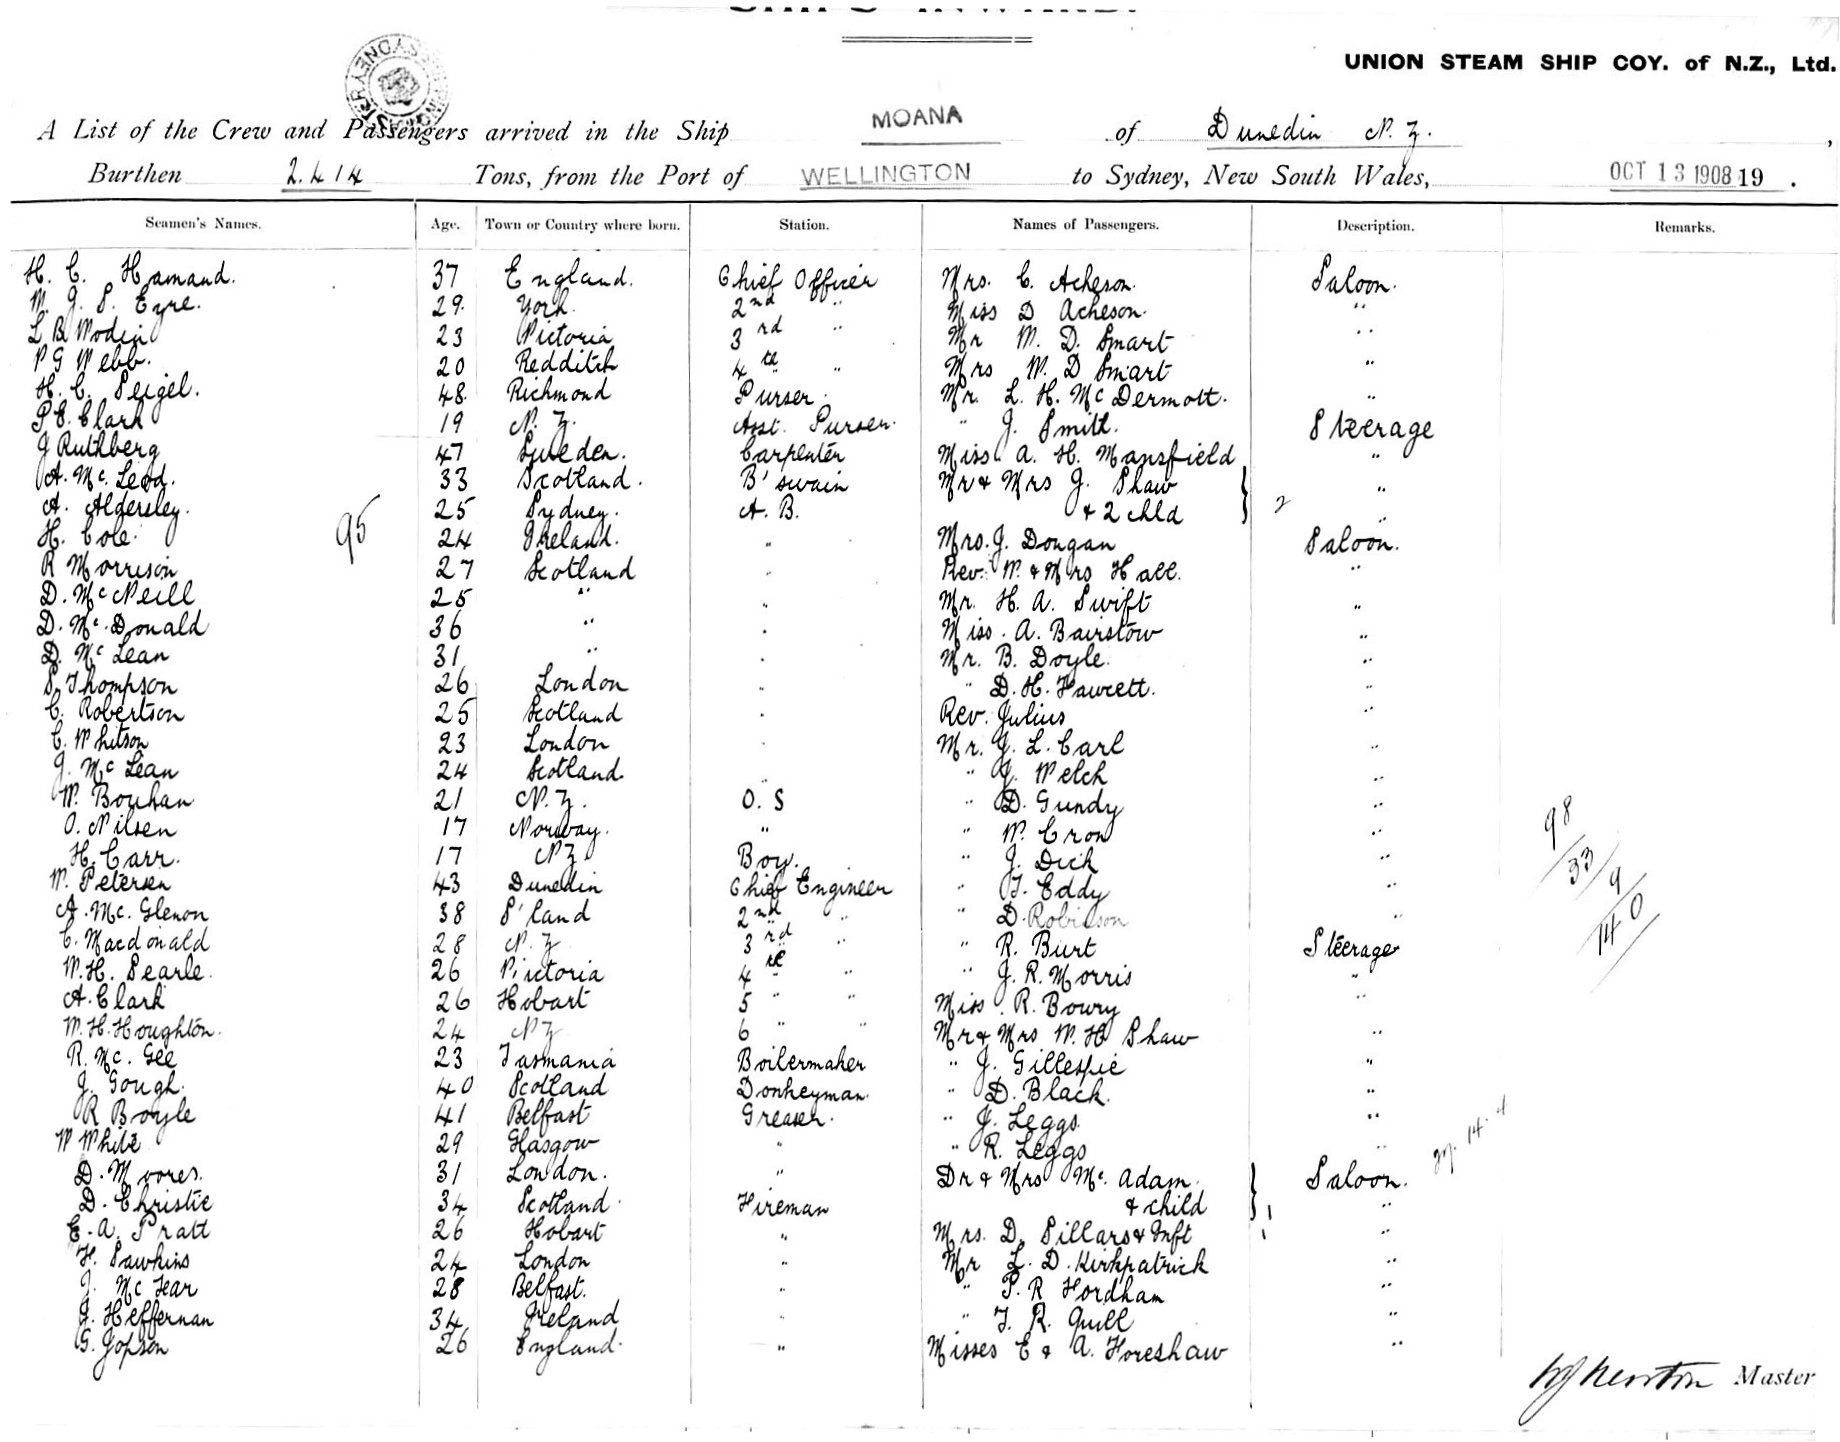 UNION STEAM SHIP COY. of N.Z., Ltd.
A List of the Crew and Passengers arrived in the Ship MOANA of Dunedin N.Z.,
Burthen 2.414 Tons, from the Port of WELLINGTON to Sydney, New South Wales, OCT 13 1908 19 .
Seamen's Names. Age. Town or Country where born. Station. Names of Passengers. Description. Remarks.
H. C. Hamand. 37 England. Chief Officer Mrs. C. Acheson. Saloon.
M. J. S. Eyre. 29. York. 2nd " Miss D Acheson. "
L B Modin 23 Victoria 3rd " Mr M. D. Smart "
P G Webb. 20 Redditch 4th " Mrs M. D Smart "
H. C. Seigel. 48. Richmond Purser. Mr. L. H. McDermott. "
P C. Clark 19 N. Z. Asst. Purser. " J. Smith. Steerage
J Ruthberg 47 Sweden. Carpenter Miss A. H. Mansfield "
A. Mc. Leod. 33 Scotland. B'swain Mr & Mrs J. Shaw "
A. Aldersley. 25 Sydney. A. B. & 2 chld } 2 "
H. Cole. 95 24 Ireland. " Mrs. J. Dougan Saloon.
R Morrison 27 Scotland " Rev. W. & Mrs Hall. "
D. McNeill 25 " " Mr. H. A. Swift "
D. Mc. Donald 36 " " Miss. A. Bairstow "
D. Mc Lean 31 " " Mr. B. Doyle. "
S. Thompson 26 London " " D. H. Fawcett. "
C. Robertson 25 Scotland " Rev. Julius "
C. Whitson 23 London " Mr. J. L. Carl "
J. Mc Lean 24 Scotland. " " J. Welch "
W. Bouhan 21 N. Z. O. S " D. Gundy "
O. Nilsen 17 Norway. " " W. Cron "
H. Carr. 17 N Z Boy. " J. Dick "
W. Petersen 43 Dunedin Chief Engineer " T. Eddy "
A. Mc. Glenon 38 S'land 2nd " " D. Robinson "
C. Macdonald 28 N. Z 3rd " " R. Burt Steerage
W. H. Searle. 26 Victoria 4th " " J. R. Morris "
A. Clark 26 Hobart 5 " " Miss. R. Bowry "
W. H. Houghton. 24 N Z 6 " " Mr & Mrs W. H Shaw "
R. Mc. Gee 23 Tasmania Boilermaker " J. Gillespie "
J. Gough. 40 Scotland Donkeyman. " D. Black. "
R Boyle 41 Belfast Greaser. " J. Leggs. "
W White 29 Glasgow " " R. Leggs "
D. Moores. 31 London. " Dr & Mrs Mc. Adam. Saloon.
D. Christie 34 Scotland. Fireman & child } 1 "
E. A. Pratt 26 Hobart " Mrs. D. Sillars & Inft 1 "
H. Sawkins 24 London " Mr L. D. Kirkpatrick "
J. Mc Fear 28 Belfast. " " P. R Fordham "
J. Heffernan 34 Ireland " " T. R. Quill "
G. Jopson 26 England. " Misses E & A. Foreshaw "
98
33
9
140
Master